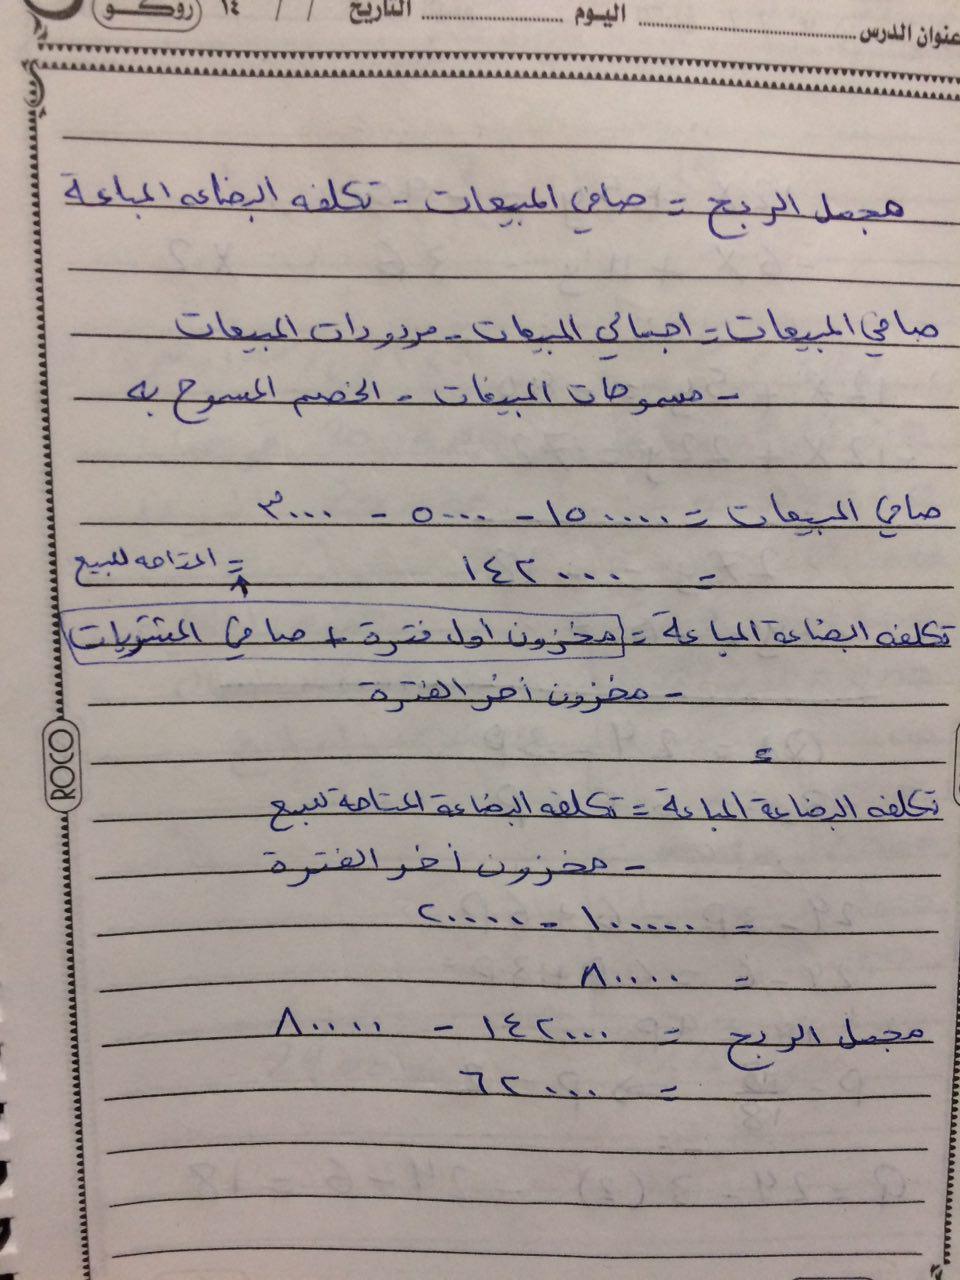 عنوان الدرس ........ اليوم ........ التاريخ / / ١٤
روكو
مجمل الربح = صافي المبيعات - تكلفه البضاعه المباعة
صافي المبيعات = اجمالي المبيعات - مردودات المبيعات
- مسموحات المبيعات - الخصم المسموح به
صافي المبيعات = ١٥٠٠٠٠ - ٥٠٠٠ - ٣٠٠٠
= ١٤٢٠٠٠
= المتاحه للبيع
تكلفه البضاعة المباعة = مخزون أول فترة + صافي المشتريات
- مخزون أخر الفترة
تكلفه البضاعة المباعة = تكلفه البضاعة المتاحة للبيع
- مخزون أخر الفترة
= ١٠٠٠٠٠ - ٢٠٠٠٠
= ٨٠٠٠٠
مجمل الربح = ١٤٢٠٠٠ - ٨٠٠٠٠
= ٦٢٠٠٠
ROCO